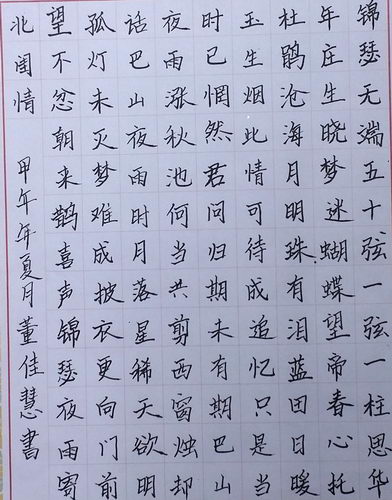 锦瑟无端五十弦一弦一柱思华
年庄生晓梦迷蝴蝶望帝春心托
杜鹃沧海月明珠有泪蓝田日暖
玉生烟此情可待成追忆只是当
时已惘然君问归期未有期巴山
夜雨涨秋池何当共剪西窗烛却
话巴山夜雨时月落星稀天欲明
孤灯未灭梦难成披衣更向门前
望不忿朝来鹊喜声锦瑟夜雨寄
北闺情 甲午年夏月董佳慧書